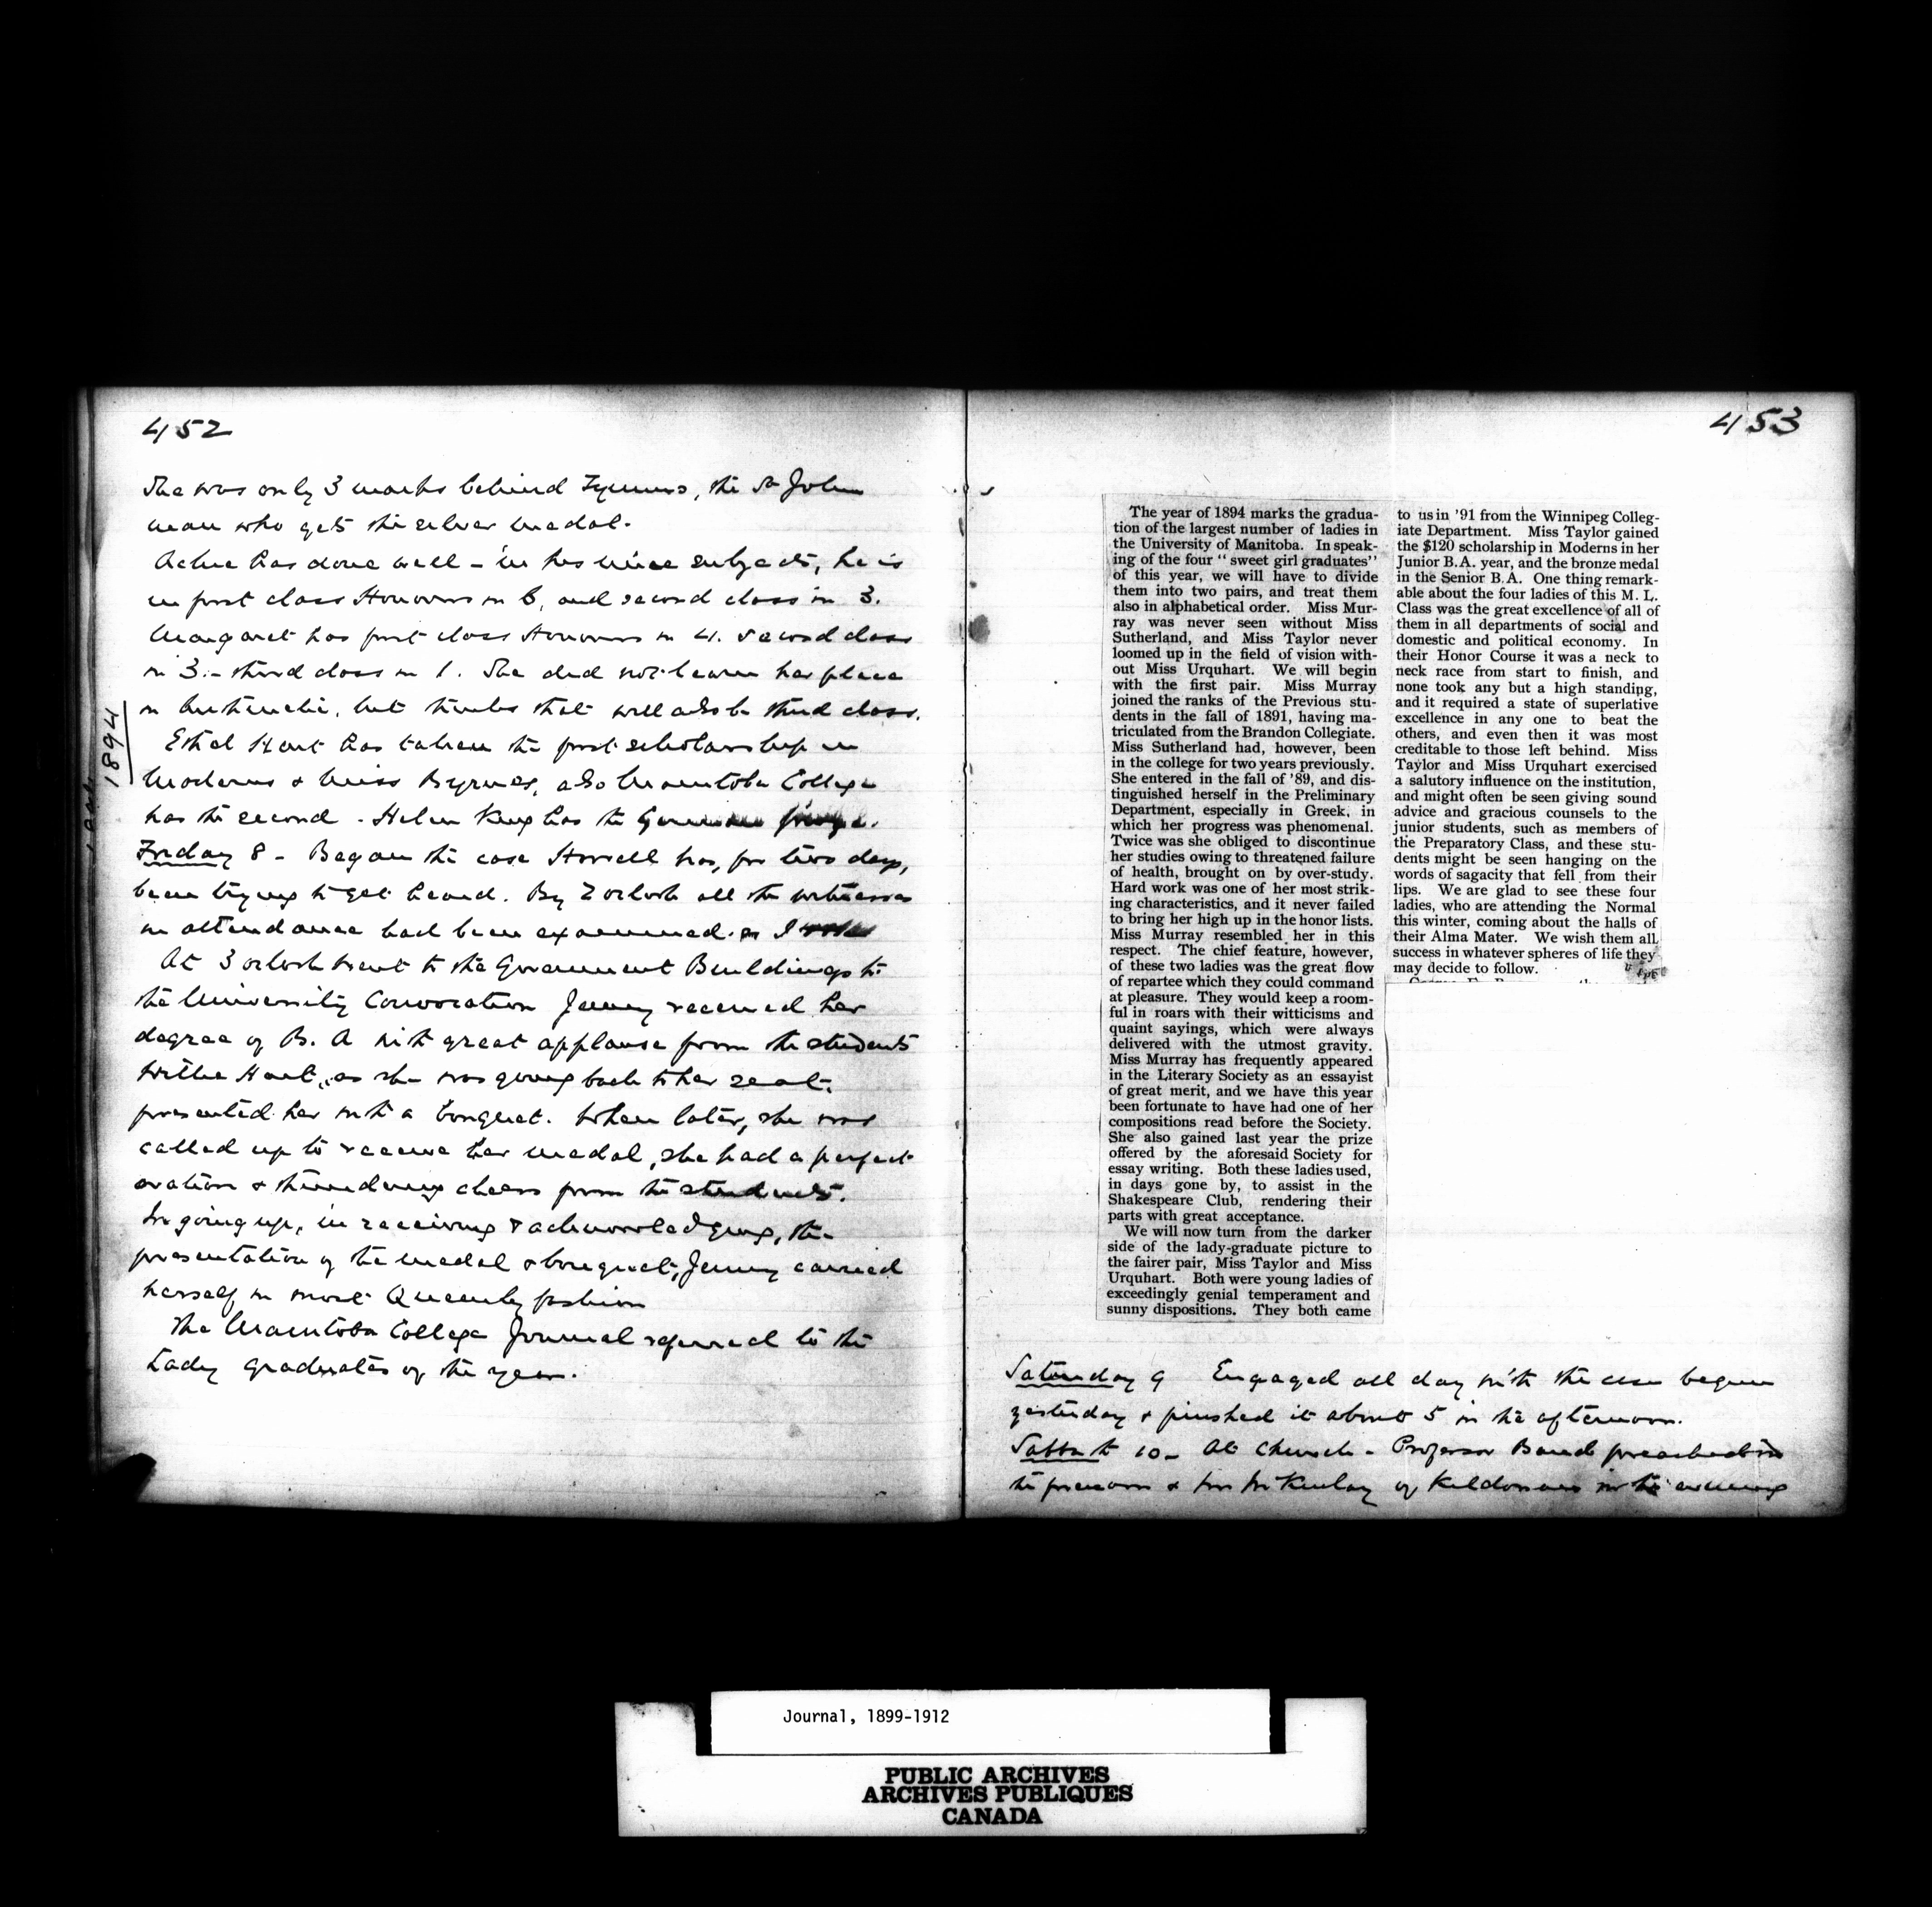 452
She was only 3 marks behind the St John
man who gets the silver medal.
has done well - in his nine subjects, he is
in first class Honours in 6, and second class in 3.
Margaret has first class Honours in 4. second class
in 3 - third class in 1. She did not learn her place
in Arithmetic, but thinks that will also be third class.
1894
Ethel Hart has taken the first scholarship in
Moderns & Miss Byrnes, also Manitoba College
has the second - Helen King has the German
Friday 8 - Began the case Howell has, for two days,
been trying to get heard. By 2 oclock all the witnesses
in attendance had been examined. I
At 3 oclock went to the Government Buildings to
the University Convocation Jenny received her
degree of B. A with great applause from the students
Willie Hart, as she was going back to her seat,
presented her with a bouquet. When later, she was
called up to receive her medal, she had a perfect
ovation & thundering cheers from the students.
In going up, in receiving & acknowledging, the
presentation of the medal & bouquet, Jenny carried
herself in most Queenly fashion
The Manitoba College Journal referred to the
Lady graduates of the year.
453
The year of 1894 marks the gradua-
tion of the largest number of ladies in
the University of Manitoba. In speak-
ing of the four "sweet girl graduates"
of this year, we will have to divide
them into two pairs, and treat them
also in alphabetical order. Miss Mur-
ray was never seen without Miss
Sutherland, and Miss Taylor never
loomed up in the field of vision with-
out Miss Urquhart. We will begin
with the first pair. Miss Murray
joined the ranks of the Previous stu-
dents in the fall of 1891, having ma-
triculated from the Brandon Collegiate.
Miss Sutherland had, however, been
in the college for two years previously.
She entered in the fall of '89, and dis-
tinguished herself in the Preliminary
Department, especially in Greek, in
which her progress was phenomenal.
Twice was she obliged to discontinue
her studies owing to threatened failure
of health, brought on by over-study.
Hard work was one of her most strik-
ing characteristics, and it never failed
to bring her high up in the honor lists.
Miss Murray resembled her in this
respect. The chief feature, however,
of these two ladies was the great flow
of repartee which they could command
at pleasure. They would keep a room-
ful in roars with their witticisms and
quaint sayings, which were always
delivered with the utmost gravity.
Miss Murray has frequently appeared
in the Literary Society as an essayist
of great merit, and we have this year
been fortunate to have had one of her
compositions read before the Society.
She also gained last year the prize
offered by the aforesaid Society for
essay writing. Both these ladies used,
in days gone by, to assist in the
Shakespeare Club, rendering their
parts with great acceptance.
We will now turn from the darker
side of the lady-graduate picture to
the fairer pair, Miss Taylor and Miss
Urquhart. Both were young ladies of
exceedingly genial temperament and
sunny dispositions. They both came
to us in '91 from the Winnipeg Colleg-
iate Department. Miss Taylor gained
the $120 scholarship in Moderns in her
Junior B.A. year, and the bronze medal
in the Senior B.A. One thing remark-
able about the four ladies of this M. L.
Class was the great excellence of all of
them in all departments of social and
domestic and political economy. In
their Honor Course it was a neck to
neck race from start to finish, and
none took any but a high standing,
and it required a state of superlative
excellence in any one to beat the
others, and even then it was most
creditable to those left behind. Miss
Taylor and Miss Urquhart exercised
a salutory influence on the institution,
and might often be seen giving sound
advice and gracious counsels to the
junior students, such as members of
the Preparatory Class, and these stu-
dents might be seen hanging on the
words of sagacity that fell from their
lips. We are glad to see these four
ladies, who are attending the Normal
this winter, coming about the halls of
their Alma Mater. We wish them all
success in whatever spheres of life they
may decide to follow.
Saturday 9 Engaged all day with the case begun
yesterday & finished it about 5 in the afternoon.
Sabbath 10 - At Church - Professor Baird preached in
the forenoon & Mr McKinlay of Kildonan in the evening
Journal, 1899-1912
PUBLIC ARCHIVES
ARCHIVES PUBLIQUES
CANADA